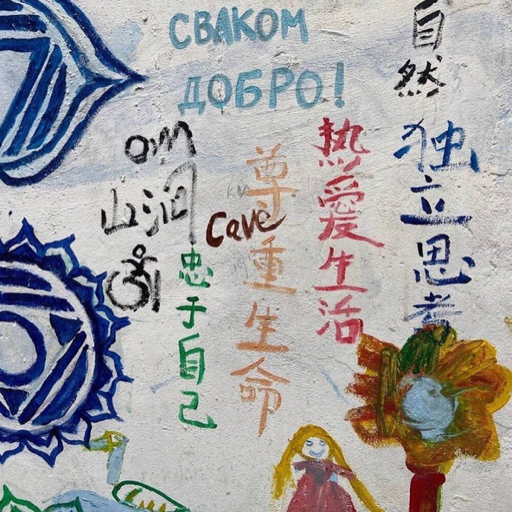 СВАКОМ
ДОБРО!
自然
独立思考
热爱生活
尊重生命
Cave
om
山洞
忠于自己